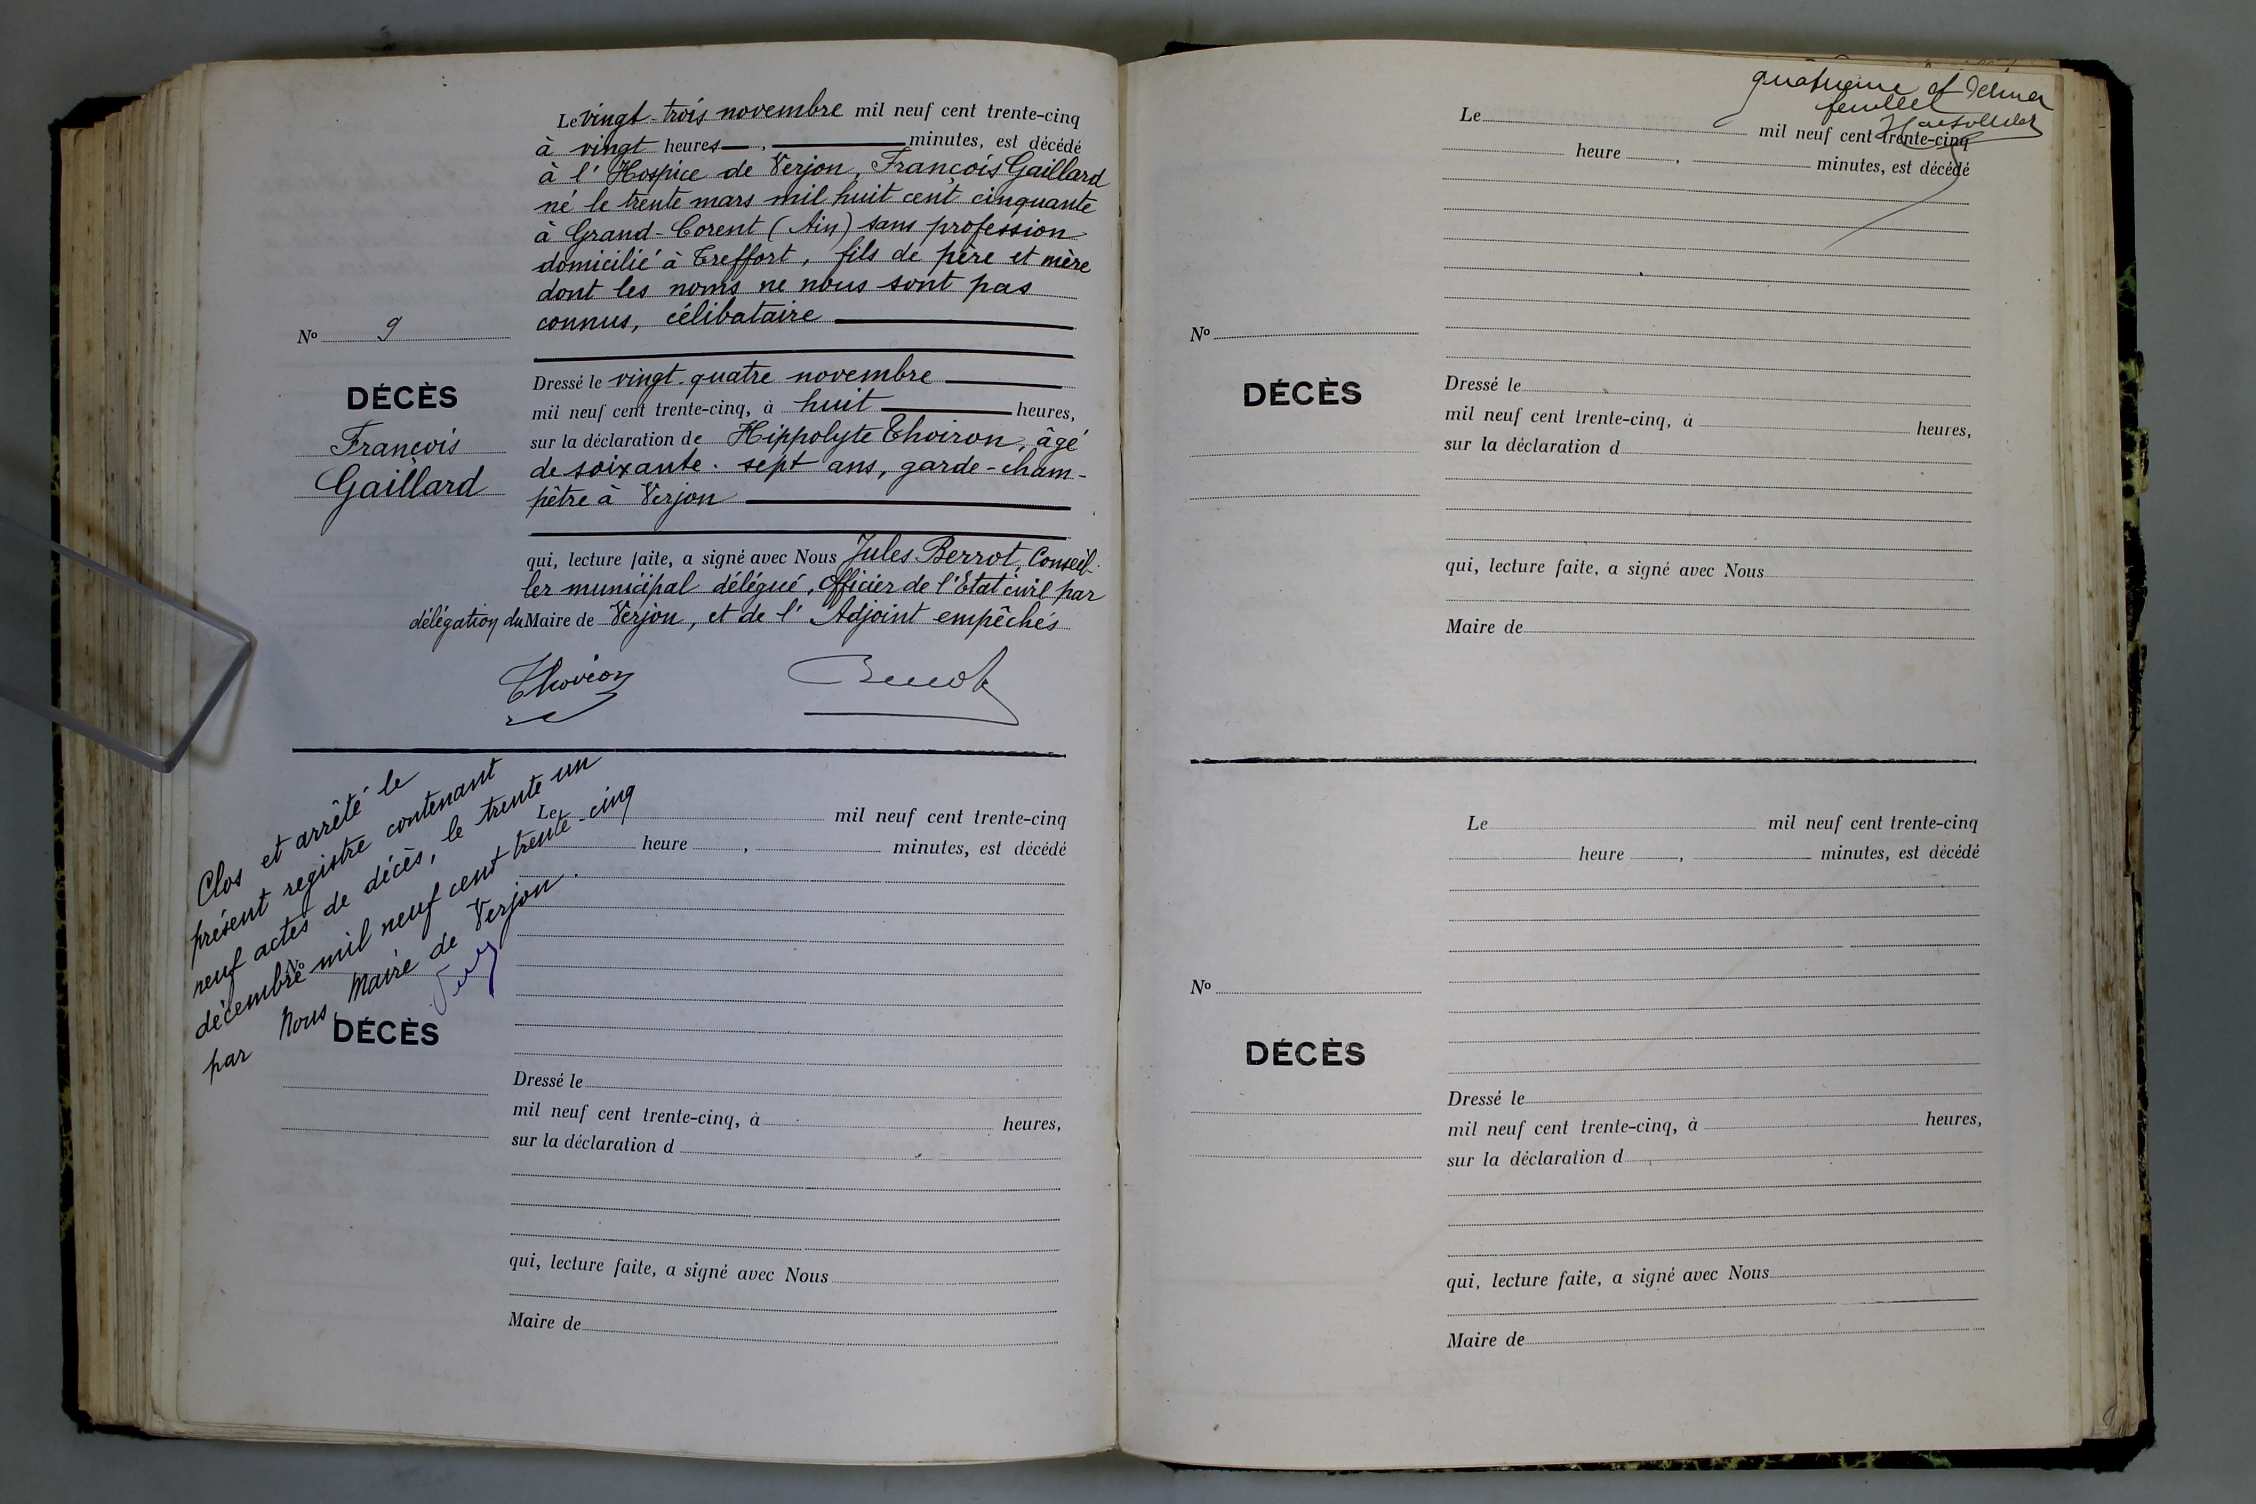 Le vingt-trois novembre mil neuf cent trente-cinq
à vingt heures , minutes, est décédé
à l'Hospice de Verjon, François Gaillard
né le trente mars mil huit cent cinquante
à Grand-Corent (Ain) sans profession
domicilié à Treffort, fils de père et mère
dont les noms ne nous sont pas
connus, célibataire
No 9
DÉCÈS
François
Gaillard
Dressé le vingt-quatre novembre
mil neuf cent trente-cinq, à huit heures,
sur la déclaration de Hippolyte Thoiron, âgé
de soixante-sept ans, garde-cham-
pêtre à Verjon
qui, lecture faite, a signé avec Nous Jules Berrot, Conseil-
ler municipal délégué, officier de l'Etat civil par
délégation du Maire de Verjon, et de l'Adjoint empêchés
Clos et arrêté le
présent registre contenant
neuf actes de décès, le trente un
décembre mil neuf cent trente-cinq
par Nous, Maire de Verjon.
Le mil neuf cent trente-cinq
heure , minutes, est décédé
No
DÉCÈS
Dressé le
mil neuf cent trente-cinq, à heures,
sur la déclaration d
qui, lecture faite, a signé avec Nous
Maire de
et
feuillet
Le mil neuf cent trente-cinq
heure , minutes, est décédé
No
DÉCÈS
Dressé le
mil neuf cent trente-cinq, à heures,
sur la déclaration d
qui, lecture faite, a signé avec Nous
Maire de
Le mil neuf cent trente-cinq
heure , minutes, est décédé
No
DÉCÈS
Dressé le
mil neuf cent trente-cinq, à heures,
sur la déclaration d
qui, lecture faite, a signé avec Nous
Maire de